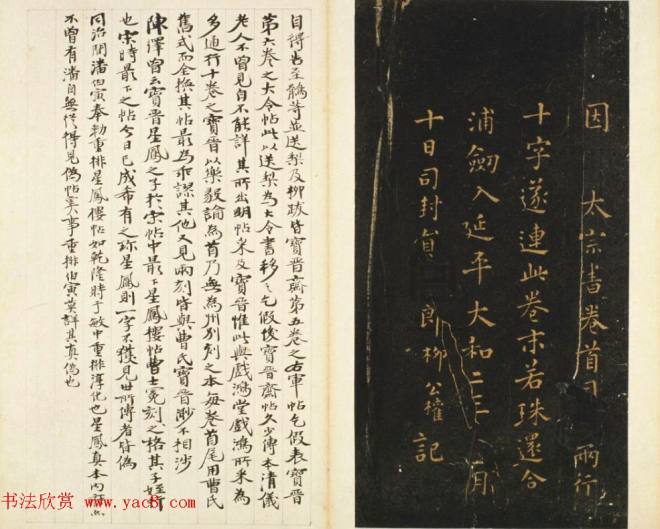 因 太宗書卷首 兩行
十字遂連此卷末若珠還合
浦劒入延平大和二年 月
十日司封員 郎柳公權記
自得告至鵝等並送梨及柳跋皆寶晉齋第五卷之右軍帖乞假表寶晉
第六卷之大令帖此以送梨為大令書移之乞假後寶晉齋帖久少傳本清儀
老人不曾見自不能詳其所出明帖采及寶晉惟此與戲鴻堂戲鴻所采為
多通行十卷之寶晉以樂毅論為首乃無為州別刻之本每卷首尾用曹氏
舊式而全換其帖最為乖謬其他又見兩刻皆與曹氏寶晉渺不相涉
陳澤曾云寶晉星鳳之子於宋帖中最下星鳳樓帖曹士冕刻之格其子
也宋時最下之帖今日已成希有之珍星鳳則一字不獲見世所傳者皆偽
同治間潘伯寅奉勅重排星鳳樓帖如乾隆時于敏中重排淳化也星鳳真本內
不曾有潘自無從得見偽帖 事重排伯寅莫詳其真偽也
书法欣赏 www.yac8.com